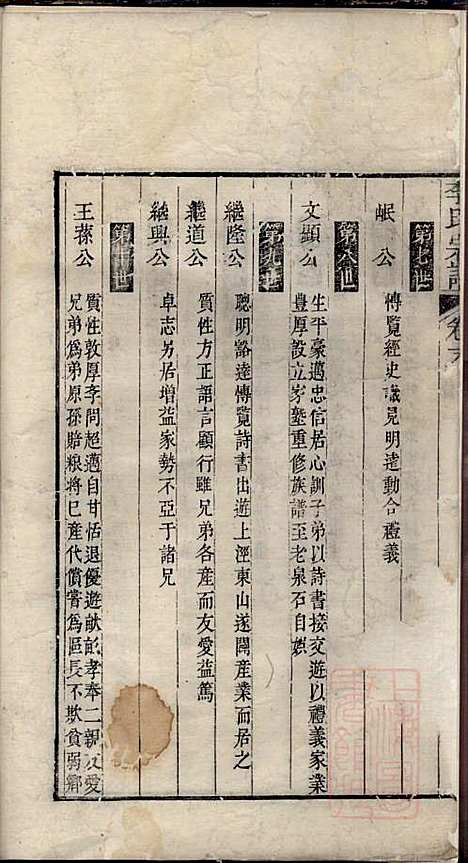 李氏宗譜 卷六
第七世
岷公
博覽經史識見明達動合禮義
第八世
文顯公
生平豪邁忠信居心訓子弟以詩書接交遊以禮義家業
豐厚設立家塾重修族譜至老泉石自娯
第九世
繼隆公
聰明豁達博覽詩書出遊上涇東山遂闢産業而居之
繼道公
質性方正語言顧行雖兄弟各産而友愛益篤
繼興公
卓志另居增益家勢不亞于諸兄
第十世
王蓀公
質性敦厚李問超邁自甘恬退優遊畎畝孝奉二親友愛
兄弟爲弟原孫賠粮將巳産代償嘗爲區長不欺貧弱鄉